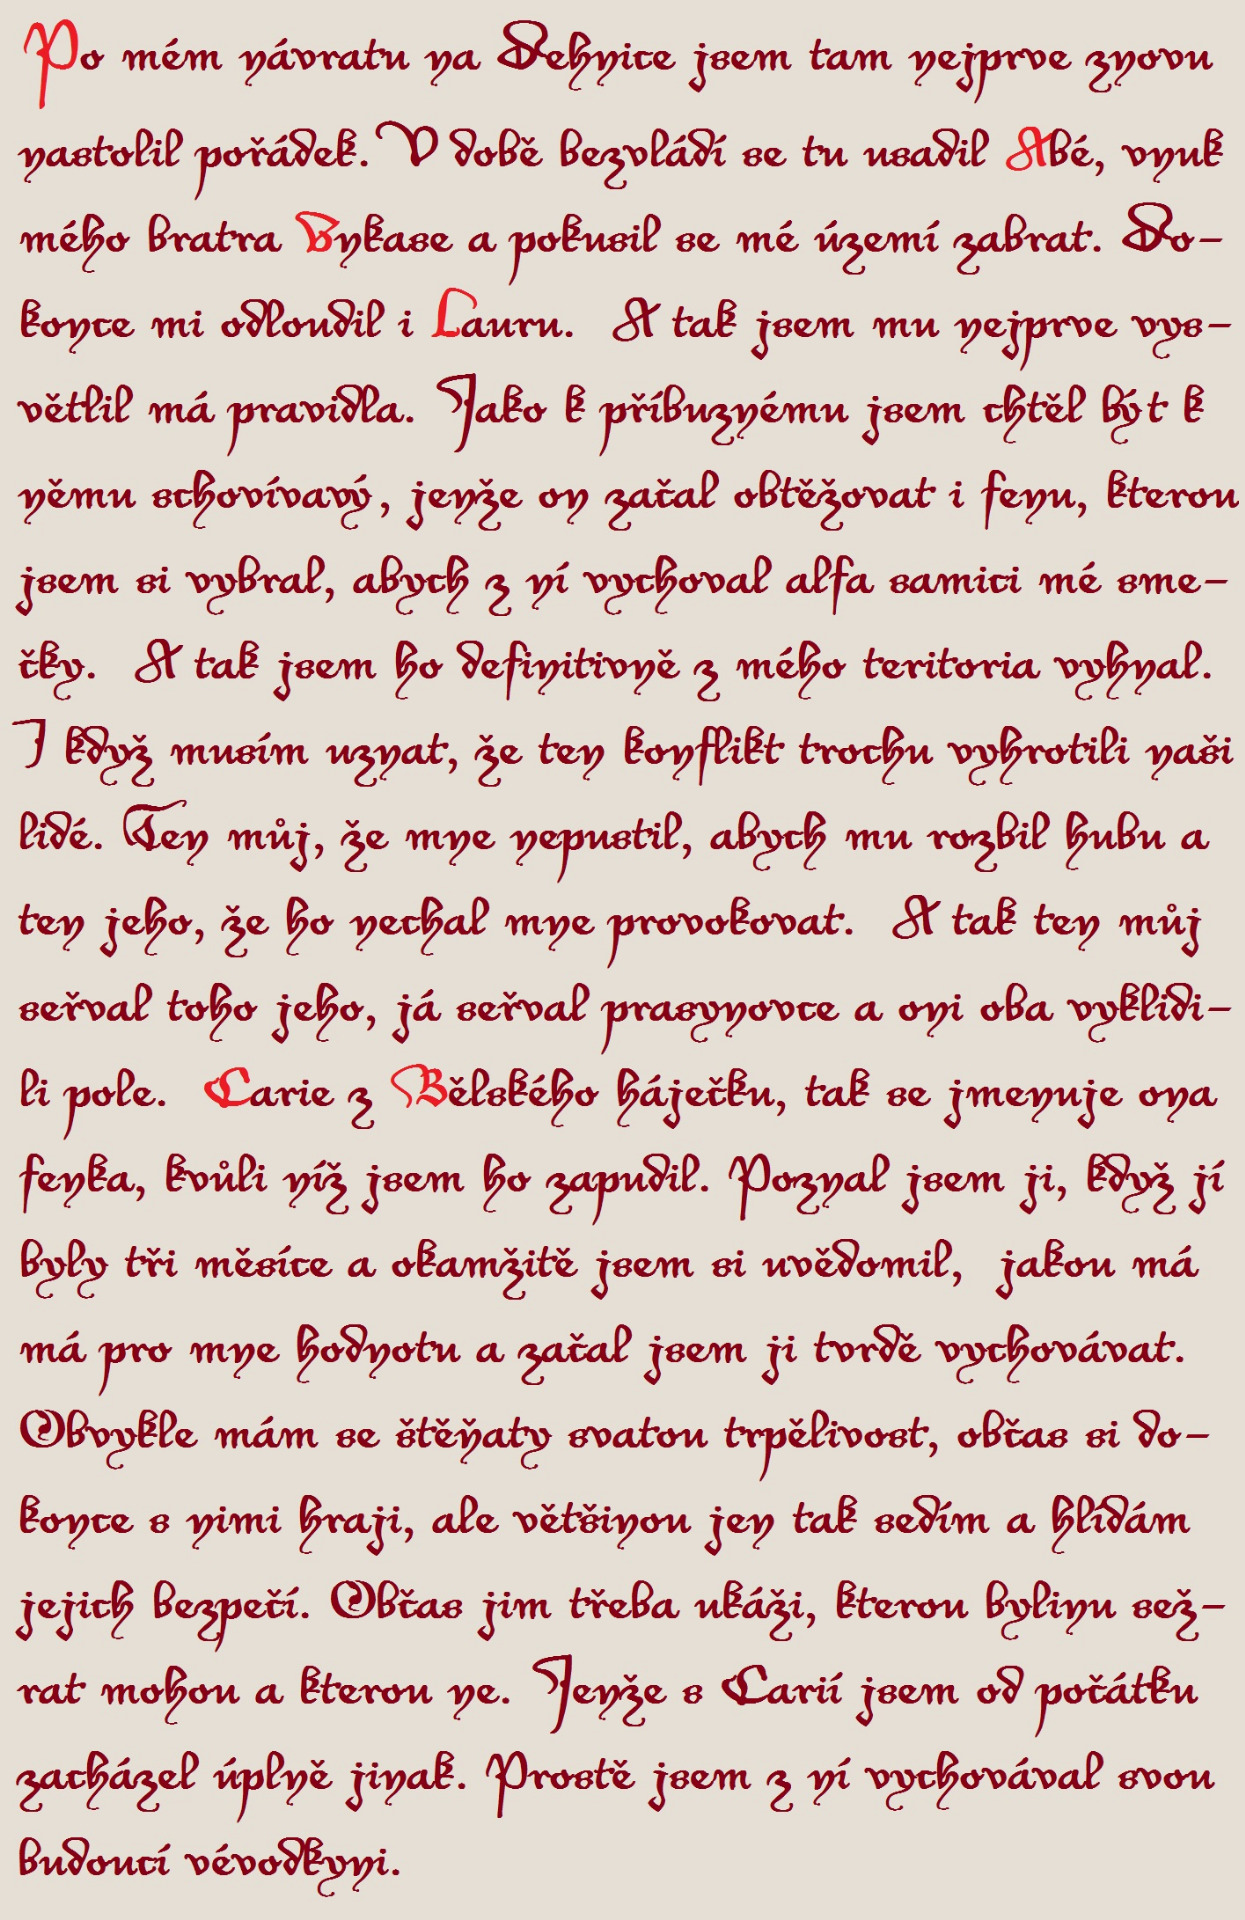 Po mém návratu na Dehnice jsem tam nejprve znovu
nastolil pořádek. V době bezvládí se tu usadil Abé, vnuk
mého bratra Bykase a pokusil se mé území zabrat. Do-
konce mi odloudil i Lauru. A tak jsem mu nejprve vys-
větlil má pravidla. Jako k příbuznému jsem chtěl být k
němu schovívavý, jenže on začal obtěžovat i fenu, kterou
jsem si vybral, abych z ní vychoval alfa samici mé sme-
čky. A tak jsem ho definitivně z mého teritoria vyhnal.
I když musím uznat, že ten konflikt trochu vyhrotili naši
lidé. Ten můj, že mne nepustil, abych mu rozbil hubu a
ten jeho, že ho nechal mne provokovat. A tak ten můj
seřval toho jeho, já seřval prasynovce a oni oba vyklidi-
li pole. Carie z Bělského háječku, tak se jmenuje ona
fenka, kvůli níž jsem ho zapudil. Poznal jsem ji, když jí
byly tři měsíce a okamžitě jsem si uvědomil, jakou má
má pro mne hodnotu a začal jsem ji tvrdě vychovávat.
Obvykle mám se štěňaty svatou trpělivost, občas si do-
konce s nimi hraji, ale většinou jen tak sedím a hlídám
jejich bezpečí. Občas jim třeba ukáži, kterou bylinu sež-
rat mohou a kterou ne. Jenže s Carií jsem od počátku
zacházel úplně jinak. Prostě jsem z ní vychovával svou
budoucí vévodkyni.